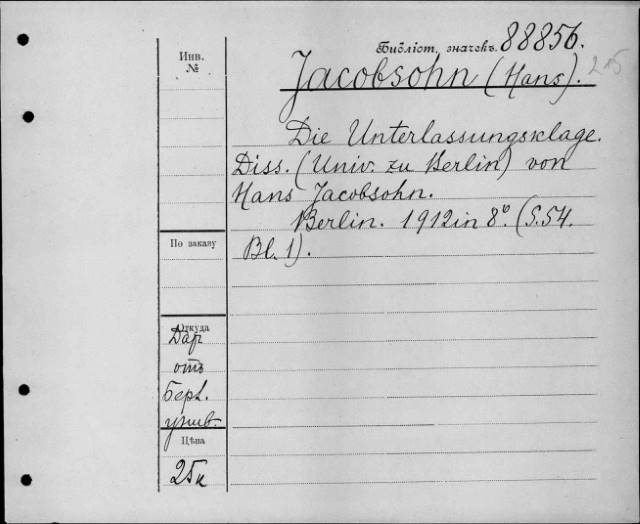 Библіот. значекъ. 88856.
Инв.
№
Jacobsohn (Hans).
Die Unterlassungsklage.
Diss. (Univ. zu Berlin) von
Hans Jacobsohn.
Berlin. 1912 in 8º. (S. 54.
Bl. 1).
По заказу
Откуда
Даръ
отъ
Берл.
унив.
Цѣна
25 к